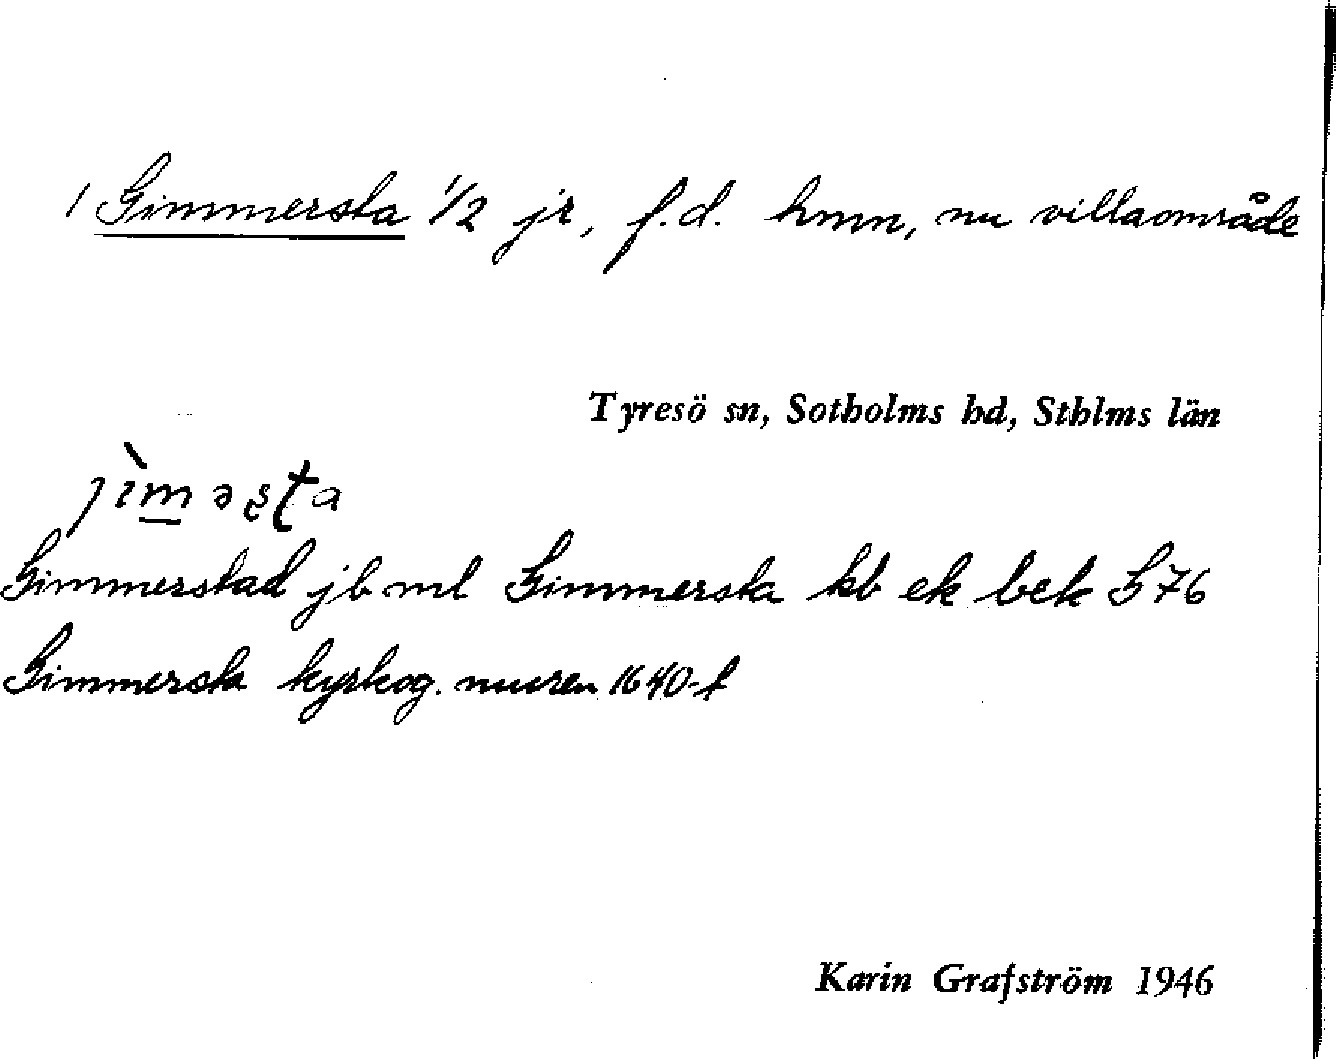 / Gimmersta 1/2 jr, f.d. hmn, nu villaområde
Tyresö sn, Sotholms hd, Sthlms län
jìməsta
Gimmerstad jb ml Gimmersta kb ek bek 576
Gimmersta kyrkog. muren 1640-t
Karin Grafström 1946